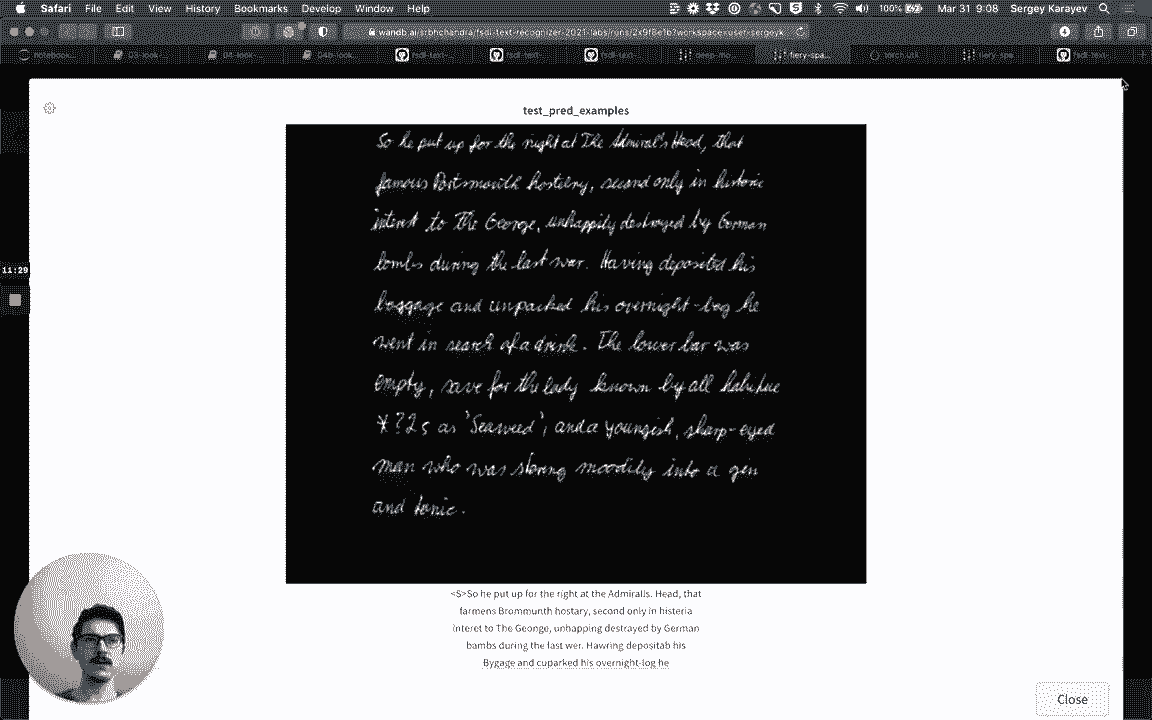 Safari File Edit View History Bookmarks Develop Window Help
100% Mar 31 9:08 Sergey Karayev
wandb.ai/srbhchandra/fsdl-text-recognizer-2021-labs/runs/2x9f8e1b?workspace=user-sergeyk
notebook... 03-look... 04-look-... 04b-look... fsdl-text-... fsdl-text... fsdl-text-... deep-mo... fiery-spa... torch.util fiery-spa fsdl-text-
test_pred_examples
So he put up for the night at The Admiral's Head, that
famous Portsmouth hostelry, second only in historic
interest to The George, unhappily destroyed by German
bombs during the last war. Having deposited his
baggage and unpacked his overnight-bag he
went in search of a drink. The lower bar was
empty, save for the lady known by all habitue
*?2s as 'Seaweed', and a youngish, sharp-eyed
man who was staring moodily into a gin
and tonic.
11:29
<S>So he put up for the right at the Admiralls. Head, that
farmens Brommunth hostary, second only in histeria
interet to The Geonge, unhapping destrayed by German
bambs during the last wer. Hawring depositab his
Bygage and cuparked his overnight-log he
Close